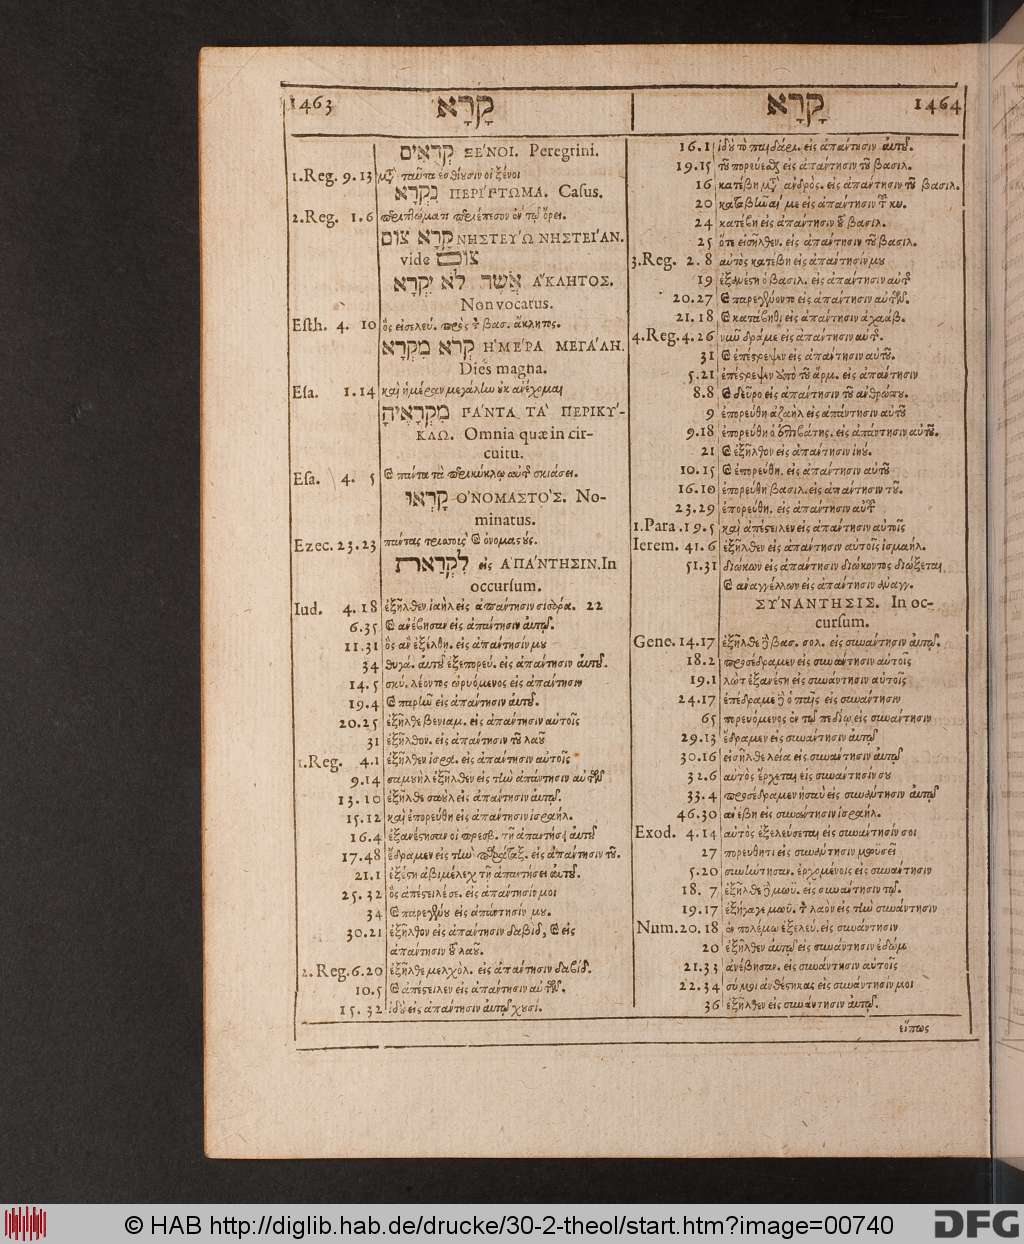 1463 קָרָא
קְרֻאִים ΞΕ'ΝΟΙ. Peregrini.
1.Reg. 9.13 μζ ταῦτα ἐσθίουσιν οἱ ξένοι
נִקְרָא ΠΕΡΙ'ΠΤΩΜΑ. Casus.
2.Reg. 1.6 περιπτώματι περιέπεσον ἐν τῷ ὄρει.
קָרָא צוֹם ΝΗΣΤΕΥ'Ω ΝΗΣΤΕΙ'ΑΝ.
vide צוֹם
אֲשֶׁר לֹא יִקְרָא Α"ΚΛΗΤΟΣ.
Non vocatus.
Esth. 4. 10 ὃς εἰσελεύ. πρὸς τ̀ βασ. ἄκλητος.
קְרֹא מִקְרָא Η'ΜΕ'ΡΑ ΜΕΓΑ'ΛΗ.
Dies magna.
Esa. 1.14 καὶ ἡμέραν μεγάλην οὐκ ἀνέχομαι
מִקְרָאֶיהָ ΠΑ'ΝΤΑ ΤΑ' ΠΕΡΙΚΥ'-
ΚΛΩ. Omnia quæ in cir-
cuitu.
Esa. 4. 5 καὶ πάντα τὰ περικύκλῳ αὐτῆς σκιάσει.
קְרֻאוּ Ο'ΝΟΜΑΣΤΟ'Σ. No-
minatus.
Ezec. 23.23 πάντας τρισσοὺς καὶ ὀνομαστούς.
לִקְרַאת εἰς ΑΠΑ'ΝΤΗΣΙΝ. In
occursum.
Iud. 4.18 ἐξῆλθεν ἰαὴλ εἰς ἀπάντησιν σισάρα. 22
6.35 καὶ ἀνέβησαν εἰς ἀπάντησιν αὐτῶν.
11.31 ὃς ἂν ἐξέλθῃ. εἰς ἀπάντησίν μου
34 θυγά. αὐτοῦ ἐξεπορεύ. εἰς ἀπάντησιν αὐτοῦ.
14.5 σκύ. λέοντος ὠρυόμενος εἰς ἀπάντησιν
19.4 καὶ παρῆν εἰς ἀπάντησιν αὐτοῦ.
20.25 ἐξῆλθε βενιαμ. εἰς ἀπάντησιν αὐτοῖς
31 ἐξῆλθον. εἰς ἀπάντησιν τοῦ λαοῦ
1.Reg. 4.1 ἐξῆλθεν ἰσρα. εἰς ἀπάντησιν αὐτοῖς
9.14 σαμουὴλ ἐξῆλθεν εἰς τὴν ἀπάντησιν αὐτῶν
13.10 ἐξῆλθε σαοὺλ εἰς ἀπάντησιν αὐτῷ.
15.12 καὶ ἐπορεύθη εἰς ἀπάντησιν ἰσραήλ.
16.4 ἐξανέστησαν οἱ πρεσβ. τῇ ἀπαντήσει αὐτοῦ
17.48 ἔδραμεν εἰς τὴν παράταξ. εἰς ἀπάντησιν τοῦ.
21.1 ἐξέστη ἀβιμέλεχ τῇ ἀπαντήσει αὐτοῦ.
25.32 ὃς ἀπέστειλέ σε. εἰς ἀπάντησίν μοι
34 καὶ παρεγένου εἰς ἀπάντησίν μου.
30.21 ἐξῆλθον εἰς ἀπάντησιν δαβὶδ, καὶ εἰς
ἀπάντησιν τοῦ λαοῦ.
2.Reg. 6.20 ἐξῆλθε μελχόλ. εἰς ἀπάντησιν δαβίδ.
10.5 καὶ ἀπέστειλεν εἰς ἀπάντησιν αὐτῶν.
15.32 ἰδοὺ εἰς ἀπάντησιν αὐτῷ χουσί.
קָרָא 1464
16.1 ἰδοὺ τὸ παιδάρι. εἰς ἀπάντησιν αὐτοῦ.
19.15 τοῦ πορεύεσθαι εἰς ἀπάντησιν τοῦ βασιλ.
16 κατέβη μζ ἀνδρὸς. εἰς ἀπάντησιν τοῦ βασιλ.
20 καταβῆναί με εἰς ἀπάντησιν τοῦ κυ.
24 κατέβη εἰς ἀπάντησιν τοῦ βασιλ.
25 ὅτε εἰσῆλθεν. εἰς ἀπάντησιν τοῦ βασιλ.
3.Reg. 2.8 αὐτὸς κατέβη εἰς ἀπάντησίν μου
19 ἐξανέστη ὁ βασιλ. εἰς ἀπάντησιν αὐτῆς
20.27 καὶ παρεγένοντο εἰς ἀπάντησιν αὐτῶν.
21.18 καὶ κατάβηθι εἰς ἀπάντησιν ἀχαάβ.
4.Reg. 4.26 νῦν δράμε εἰς ἀπάντησιν αὐτῆς.
31 καὶ ἐπέστρεψεν εἰς ἀπάντησιν αὐτοῦ.
5.21 ἐπέστρεψεν ἀπὸ τοῦ ἅρμ. εἰς ἀπάντησιν
8.8 καὶ δεῦρο εἰς ἀπάντησιν τοῦ ἀνθρώπου.
9 ἐπορεύθη ἀζαὴλ εἰς ἀπάντησιν αὐτοῦ
9.18 ἐπορεύθη ὁ ἐπιβάτης. εἰς ἀπάντησιν αὐτῶν.
21 καὶ ἐξῆλθον εἰς ἀπάντησιν ἰηού.
10.15 καὶ ἐπορεύθη. εἰς ἀπάντησιν αὐτοῦ
16.10 ἐπορεύθη βασιλ. εἰς ἀπάντησιν τοῦ.
23.29 ἐπορεύθη. εἰς ἀπάντησιν αὐτοῦ
1.Para. 19.5 καὶ ἀπέστειλεν εἰς ἀπάντησιν αὐτοῖς
Ierem. 41.6 ἐξῆλθεν εἰς ἀπάντησιν αὐτοῖς ἰσμαήλ.
51.31 διώκων εἰς ἀπάντησιν διώκοντος διώξεται
καὶ ἀναγγέλλων εἰς ἀπάντησιν ἀναγγ.
ΣΥ'ΝΑΝΤΗΣΙΣ. In oc-
cursum.
Gene. 14.17 ἐξῆλθε δὲ βασ. σοδ. εἰς συνάντησιν αὐτῷ.
18.2 προσέδραμεν εἰς συνάντησιν αὐτοῖς
19.1 λὼτ ἐξανέστη εἰς συνάντησιν αὐτοῖς
24.17 ἐπέδραμε δὲ ὁ παῖς εἰς συνάντησιν
65 πορευόμενος ἐν τῷ πεδίῳ εἰς συνάντησιν
29.13 ἔδραμεν εἰς συνάντησιν αὐτῷ
30.16 εἰσῆλθε λεία εἰς συνάντησιν αὐτῷ
32.6 αὐτὸς ἔρχεται εἰς συνάντησίν σου
33.4 προσέδραμεν ἡσαῦ εἰς συνάντησιν αὐτῷ
46.30 ἀνέβη εἰς συνάντησιν ἰσραήλ.
Exod. 4.14 αὐτὸς ἐξελεύσεται εἰς συνάντησίν σοι
27 πορεύθητι εἰς συνάντησιν μωϋσεῖ
5.20 συνήντησαν. ἐρχομένοις εἰς συνάντησιν
18.7 ἐξῆλθε δὲ μωϋ. εἰς συνάντησιν τῷ.
19.17 ἐξήγαγε μωϋ. τ̀ λαὸν εἰς τὴν συνάντησιν
Num. 20.18 ἐν πολέμῳ ἐξελεύ. εἰς συνάντησιν
20 ἐξῆλθεν αὐτῷ εἰς συνάντησιν ἐδὼμ
21.33 ἀνέβησαν. εἰς συνάντησιν αὐτοῖς
22.34 σύ μοι ἀνθέστηκας εἰς συνάντησίν μοι
36 ἐξῆλθεν εἰς συνάντησιν αὐτῷ.
εἴπως
© HAB http://diglib.hab.de/drucke/30-2-theol/start.htm?image=00740
DFG